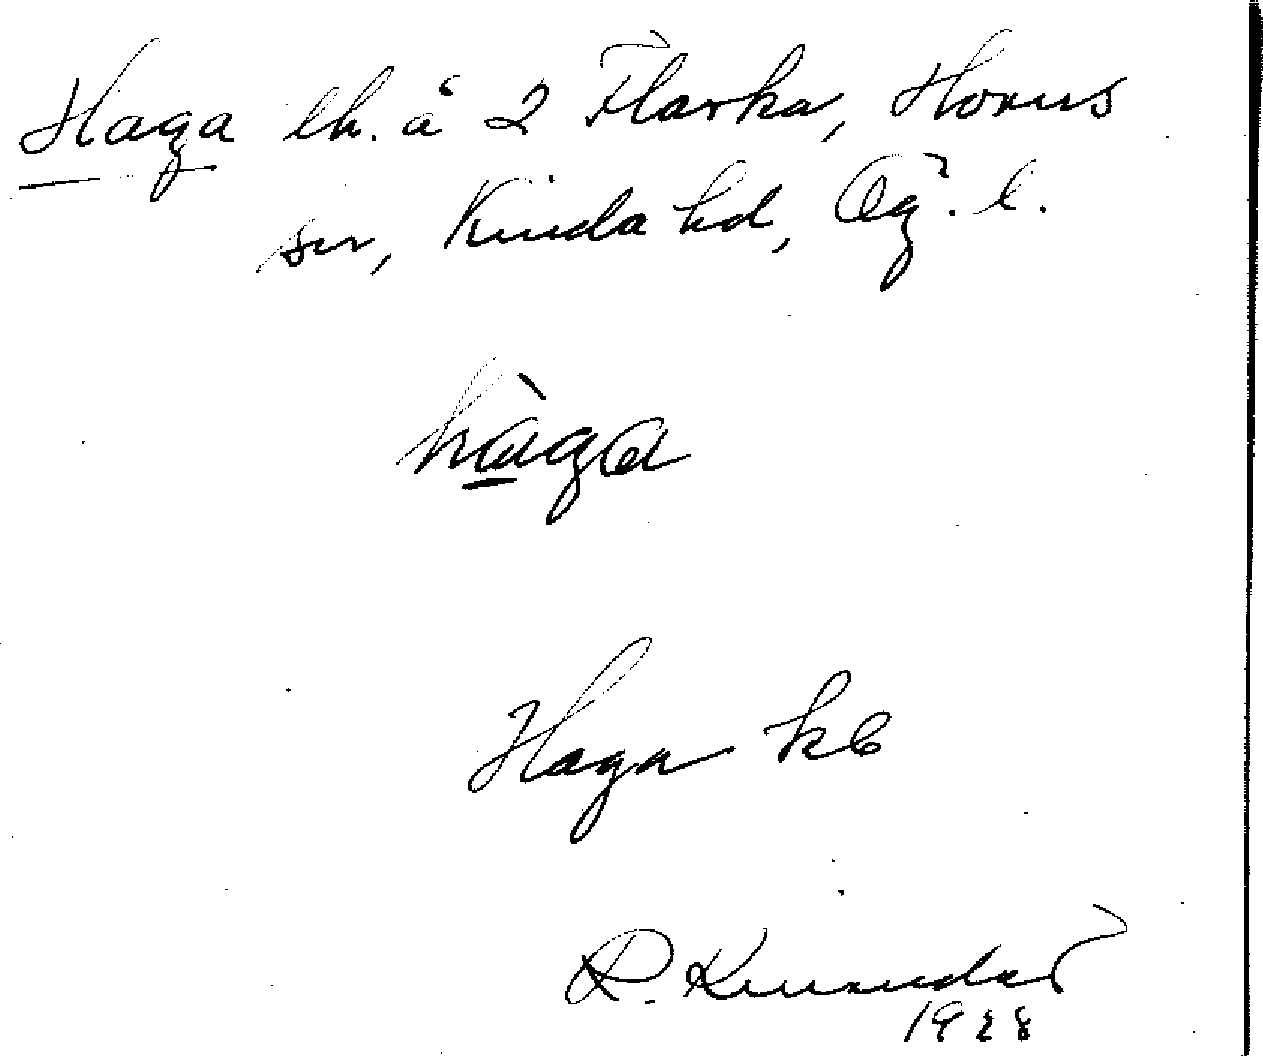 Haga lh. å 2 Flarka, Horns
sn, Kinda hd, Ög. l.
hàga
Haga kb
R. Kinander
1928